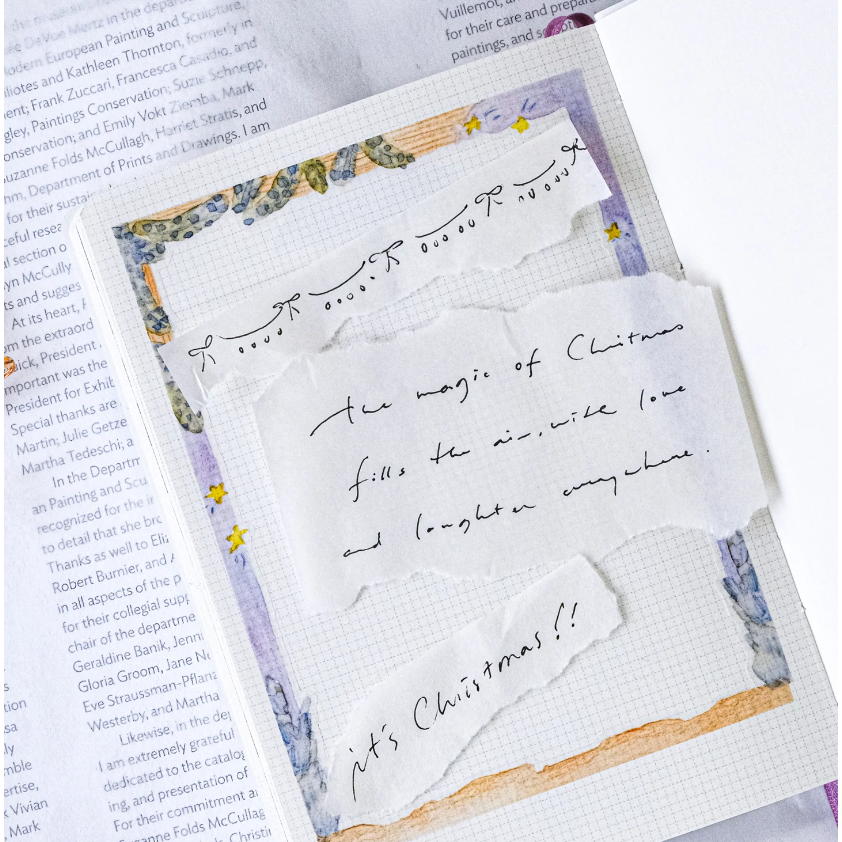 DeVue Mertz in the depar
odern European Painting and Sculpture,
iliotes and Kathleen Thornton, formerly in
ent; Frank Zuccari, Francesca Casadio, and
gley, Paintings Conservation; Suzie Schnepp,
onservation; and Emily Vokt Ziemba, Mark
uzanne Folds McCullagh, Harriet Stratis, and
hm, Department of Prints and Drawings. I am
for their sustai
ceful resea
al section o
yn McCully
ts and sugges
At its heart,
om the extraord
ick, President
mportant was the
President for Exhib
Special thanks are
Martin; Julie Getze
Martha Tedeschi; a
In the Departm
an Painting and Scu
recognized for the ir
to detail that she bro
Thanks as well to Eliz
Robert Burnier, and
in all aspects of the p
for their collegial supp
chair of the departme
Geraldine Banik, Jenni
Gloria Groom, Jane Ne
Eve Straussman-Pflanz
Westerby, and Martha
Likewise, in the dep
I am extremely grateful
dedicated to the catalog
ing, and presentation of
For their commitment a
Suzanne Folds McCullag
Christi
s
tion
sa
ly
mble
ertise,
Vivian
, Mark
Vuillemot, an
for their care and prepara
paintings, and
the magic of Christmas
fills the air, with love
and laughter everywhere.
it's Christmas!!